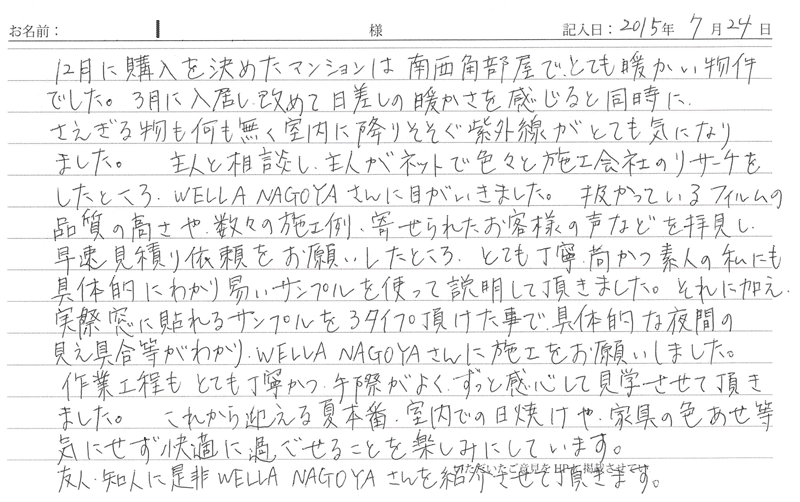 お名前： 様 記入日：2015年 7月24日
12月に購入を決めたマンションは南西角部屋で、とても暖かい物件
でした。3月に入居し、改めて日差しの暖かさを感じると同時に、
さえぎる物も何も無く室内に降りそそぐ紫外線がとても気になり
ました。 主人と相談し、主人がネットで色々と施工会社のリサーチを
したところ、WELLA NAGOYAさんに目がいきました。 扱かっているフィルムの
品質の高さや、数々の施工例、寄せられたお客様の声などを拝見し、
早速見積り依頼をお願いしたところ、とても丁寧、尚かつ素人の私にも
具体的にわかり易いサンプルを使って説明して頂きました。それに加え、
実際窓に貼れるサンプルを3タイプ頂けた事で、具体的な夜間の
見え具合等がわかり、WELLA NAGOYAさんに施工をお願いしました。
作業工程もとても丁寧かつ、手際がよく、ずっと感心して見学させて頂き
ました。 これから迎える夏本番、室内での日焼けや、家具の色あせ等
気にせず快適に過ごせることを楽しみにしています。
友人・知人に是非WELLA NAGOYAさんを紹介させて頂きます。
いただいたご意見をHPに掲載させて